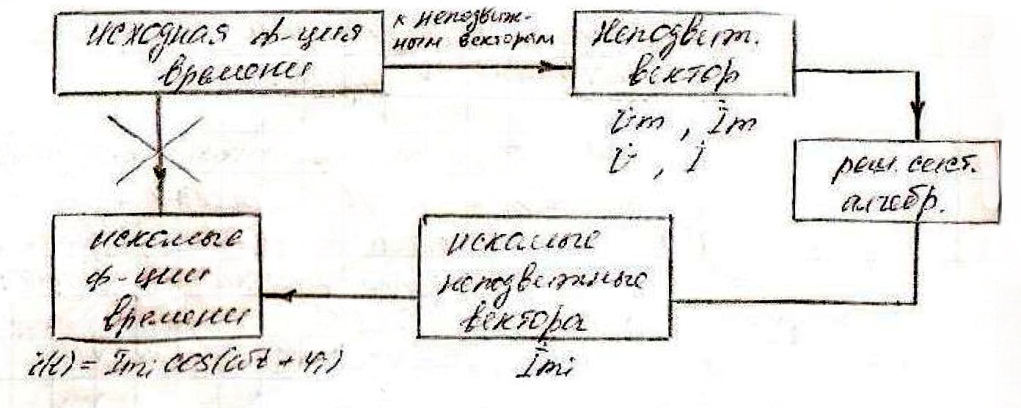 исходная ф-ция
времени
к неподвиж-
ным векторам
Неподвиж.
вектор
U̇m , İm
U̇ , İ
реш. сист.
алгебр.
искомые
неподвижные
вектора
İmi
искомые
ф-ции
времени
i(t) = Imi cos(ωt + φi)